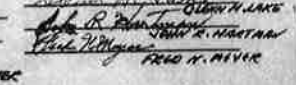 GLENN H. LAKE
John R. Hartman
JOHN R. HARTMAN
Fred N. Meyer
FRED N. MEYER